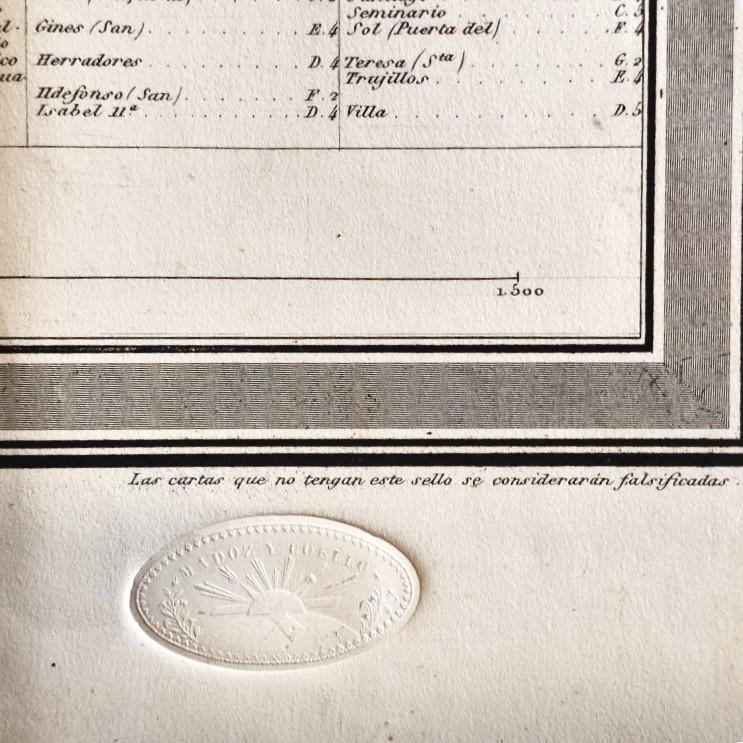 Seminario C. 5
Gines (San) E. 4 Sol (Puerta del) F. 4
co Herradores D. 4 Teresa (Sta) G. 2
ua- Trujillos E. 4
Ildefonso (San) F. 2
Isabel IIa D. 4 Villa D. 5
1.500
Las cartas que no tengan este sello se considerarán falsificadas.
MADOZ Y COELLO